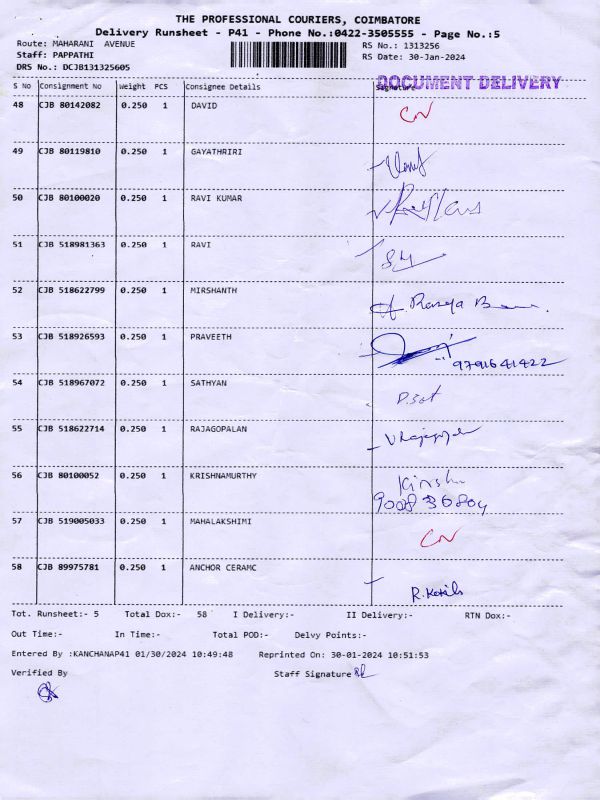 THE PROFESSIONAL COURIERS, COIMBATORE
Delivery Runsheet - P41 - Phone No.:0422-3505555 - Page No.:5
Route: MAHARANI AVENUE RS No.: 1313256
Staff: PAPPATHI RS Date: 30-Jan-2024
DRS No.: DCJB131325605
DOCUMENT DELIVERY
S No Consignment No Weight PCS Consignee Details Signature
48 CJB 80142082 0.250 1 DAVID CN
49 CJB 80119810 0.250 1 GAYATHRIRI
50 CJB 80100020 0.250 1 RAVI KUMAR
51 CJB 518981363 0.250 1 RAVI
52 CJB 518622799 0.250 1 MIRSHANTH
53 CJB 518926593 0.250 1 PRAVEETH
9791641422
54 CJB 518967072 0.250 1 SATHYAN
55 CJB 518622714 0.250 1 RAJAGOPALAN
56 CJB 80100052 0.250 1 KRISHNAMURTHY
57 CJB 519005033 0.250 1 MAHALAKSHIMI CN
58 CJB 89975781 0.250 1 ANCHOR CERAMC
Tot. Runsheet:- 5 Total Dox:- 58 I Delivery:- II Delivery:- RTN Dox:-
Out Time:- In Time:- Total POD:- Delvy Points:-
Entered By :KANCHANAP41 01/30/2024 10:49:48 Reprinted On: 30-01-2024 10:51:53
Verified By Staff Signature